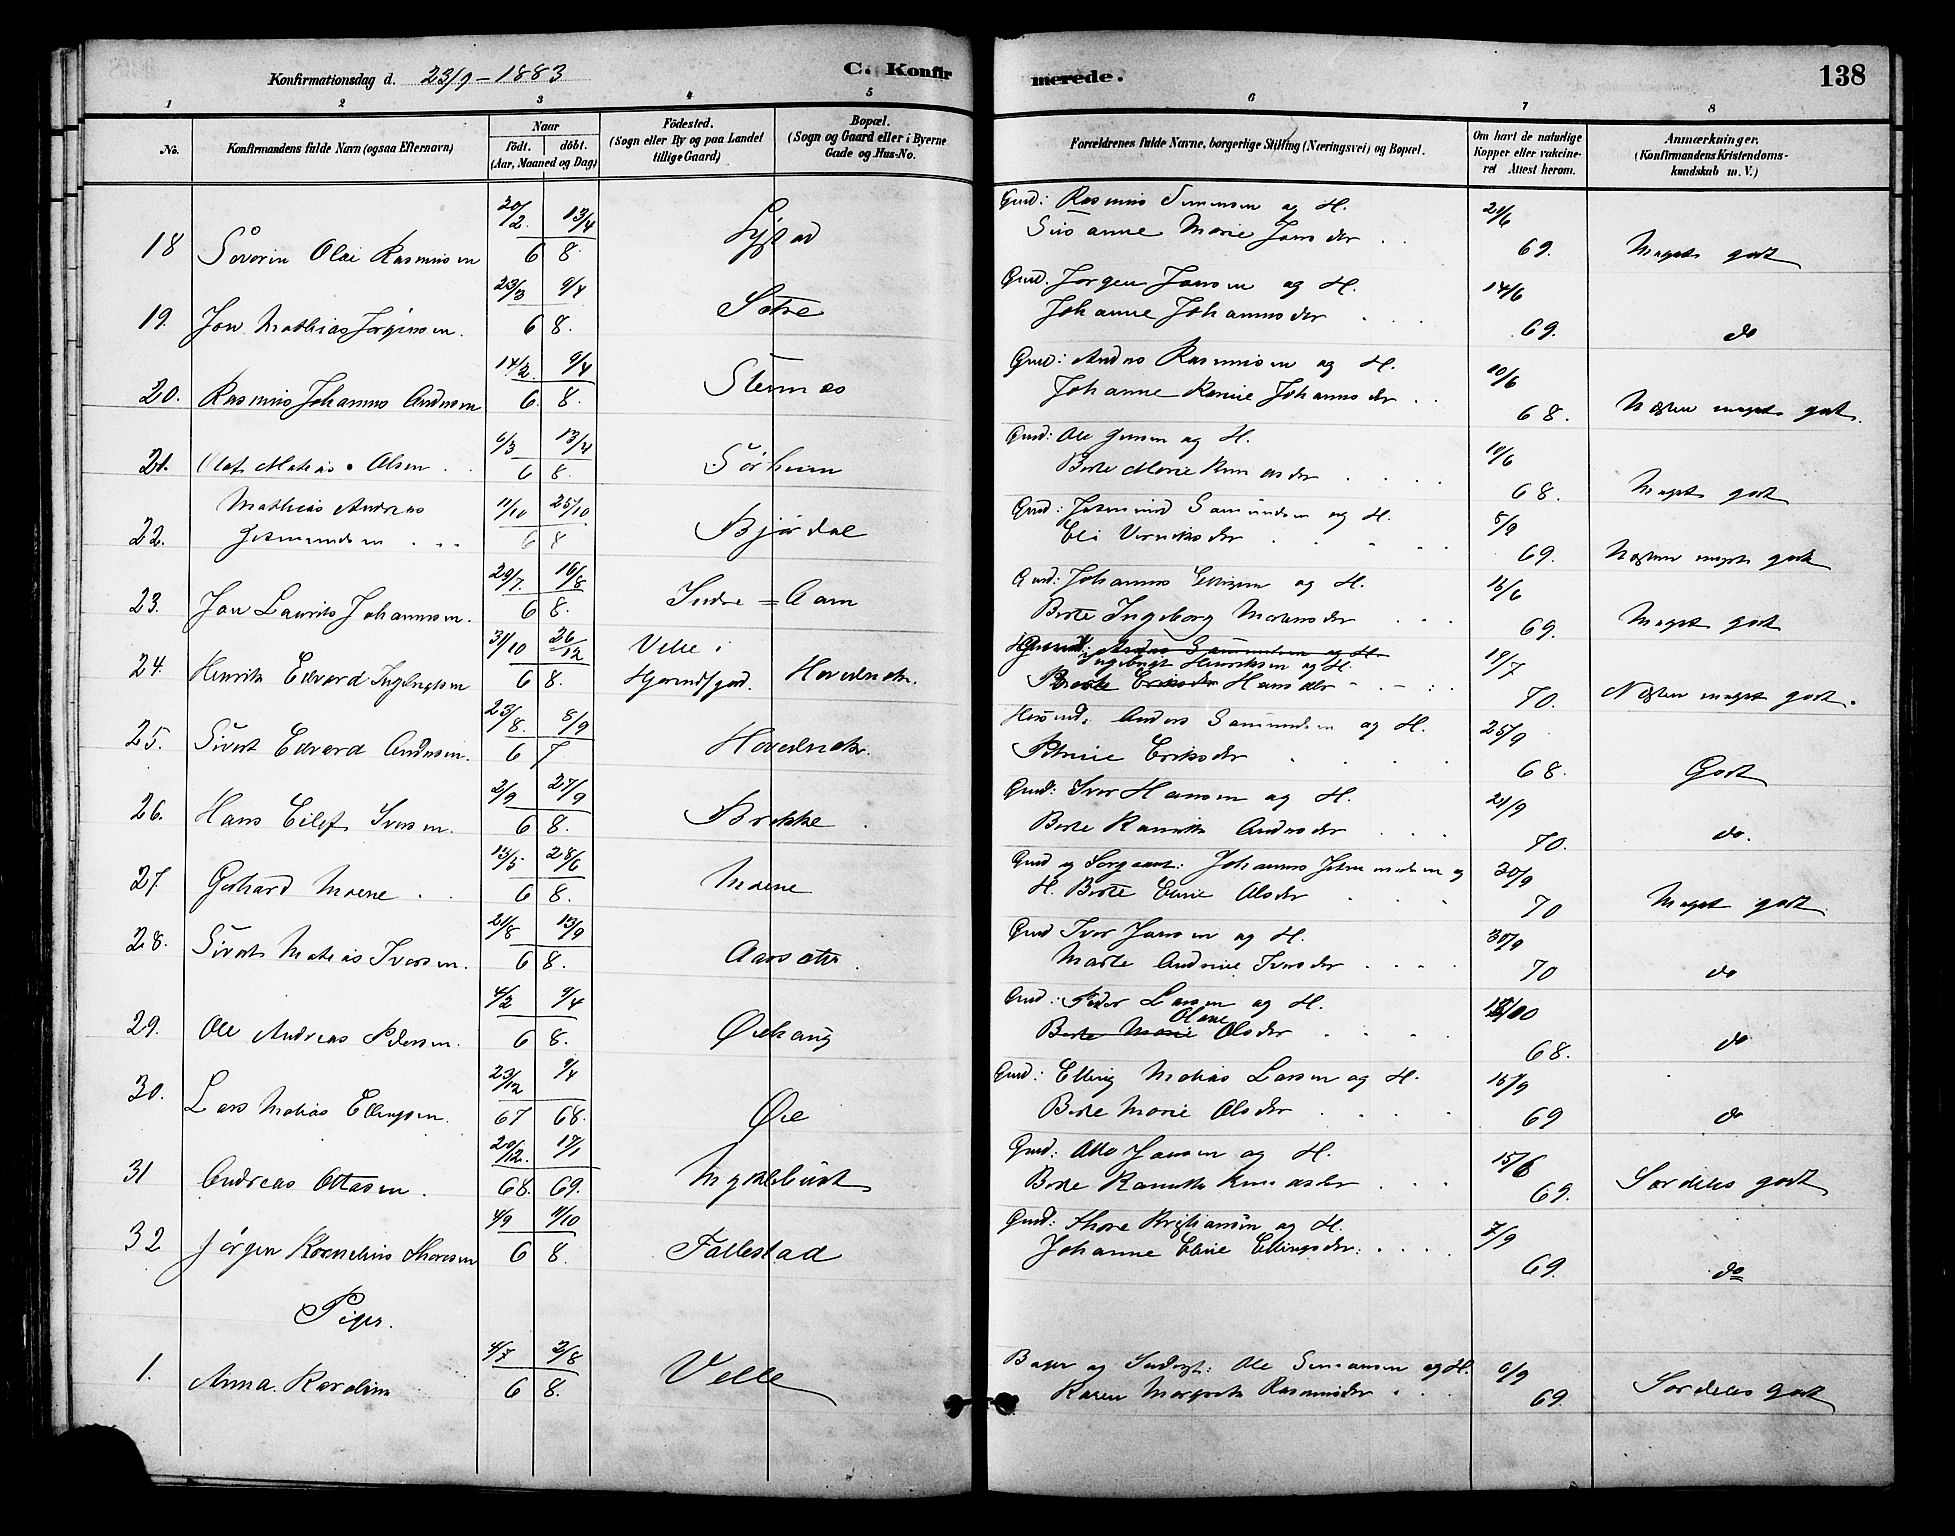 Konfirmationsdag d. 23/9 - 1883
C. Konfirmerede.
138
1 2 3 4 5 6 7 8
No.
Konfirmandens fulde Navn (ogsaa Efternavn)
Naar
födt. döbt.
(Aar, Maaned og Dag)
Födested.
(Sogn eller By og paa Landet
tillige Gaard)
Bopæl.
(Sogn og Gaard eller i Byerne
Gade og Hus-No.
Forældrenes fulde Navne, borgerlige Stilling (Næringsvei) og Bopæl.
Om havt de naturlige
Kopper eller vakcine-
ret Attest herom.
Anmærkninger.
(Konfirmandens Kristendoms-
kundskab m. V.)
18 Søverin Olai Rasmussen 20/2 68 13/4 Lystad
Gmd: Rasmus Simensen og H.
Susanne Marie Jansdtr 21/6 69. Meget godt
19. Jon Mathias Jørginsen. 23/3 68. 9/4 Sætre
Gmd. Jørgen Jansen og H.
Johanne Johannsdtr 14/6 69. do
20. Rasmus Johannes Andersen 14/2 68. 9/4 Stennes
Gmd: Anders Rasmussen og H.
Johanne Karine Johannsdtr 10/6 68. Næsten meget godt.
21. Olaf Matias Olsen 6/3 68. 13/4 Sørheim
Gmd: Ole Jensen og H.
Berte Marie Knudsdtr 10/6 68. Meget godt
22. Mathias Andreas
Jetmundsen 11/10 68 25/10 Bjørdal
Gmd: Jetmund Samundsen og H.
Eli 8/9 69. Næsten meget godt
23. Jon Laurits Johannsen. 29/7. 68. 16/8 Indre = Aam
Gmd: Johannes Ellingsen og H.
Berte Ingeborg 16/6 69. Meget godt
24. Henrik Edvard Ingebrigtsen 31/10 68. 26/12 Velle i
Hjørundfjord. Hovdenakr.
Anders Samundsen og H.
Ingebrigt Henriksen og H.
Hansdtr 19/7 70. Næsten meget godt.
25. Sivert Edvard Andersen. 23/8. 67 8/9 Hovdenakr.
Husmd. Anders Samundsen og H.
Petrine Eriksdtr 25/9 68. Godt
26. Hans Eilef Iversen. 2/9 68. 27/9 Brekke
Gmd: Iver Hansen og H.
Berte Andersdtr 21/9 70. do.
27. Gerhard Moene 13/5 68. 28/6 Moene
Gmd og Johannes Jetmundsen og
H. Berte Eline Olsdtr 30/9 70 Meget godt.
28. Sivert Matias Iversen. 21/8 68. 13/9 Aarsætr.
Gmd Iver Jansen og H.
Marte Andrine Iversdtr 30/9 70 do
29. Ole Andreas Pedersen. 4/2 68. 9/4 Øiehaug
Gmd: Peder Larsen og H.
Berte Marie Olane Olsdtr 68. do
30. Lars Matias Ellingsen. 23/12 67 9/4 68. Øie
Gmd: Elling Matias Larsen og H.
Berte Marie Olsdtr 16/9 69 do
31 Andreas Ottesen. 20/12. 68. 17/1 69. Myklebust
Gmd: Otto Jansen og H.
Berte 15/6 69. Særdeles godt
32 Jørgen Kornelius Thoresen 4/9 68. 11/10 Follestad
Gmd: Thore Kristiansen og H.
Johanne Eline Ellingsdtr. 7/9 69. do
Piger.
1. Anna Karoline 4/7 68. 2/8 Velle
Ole Simensen og H.
Karen Margrete Rasmusdtr 6/9 69. Særdeles godt